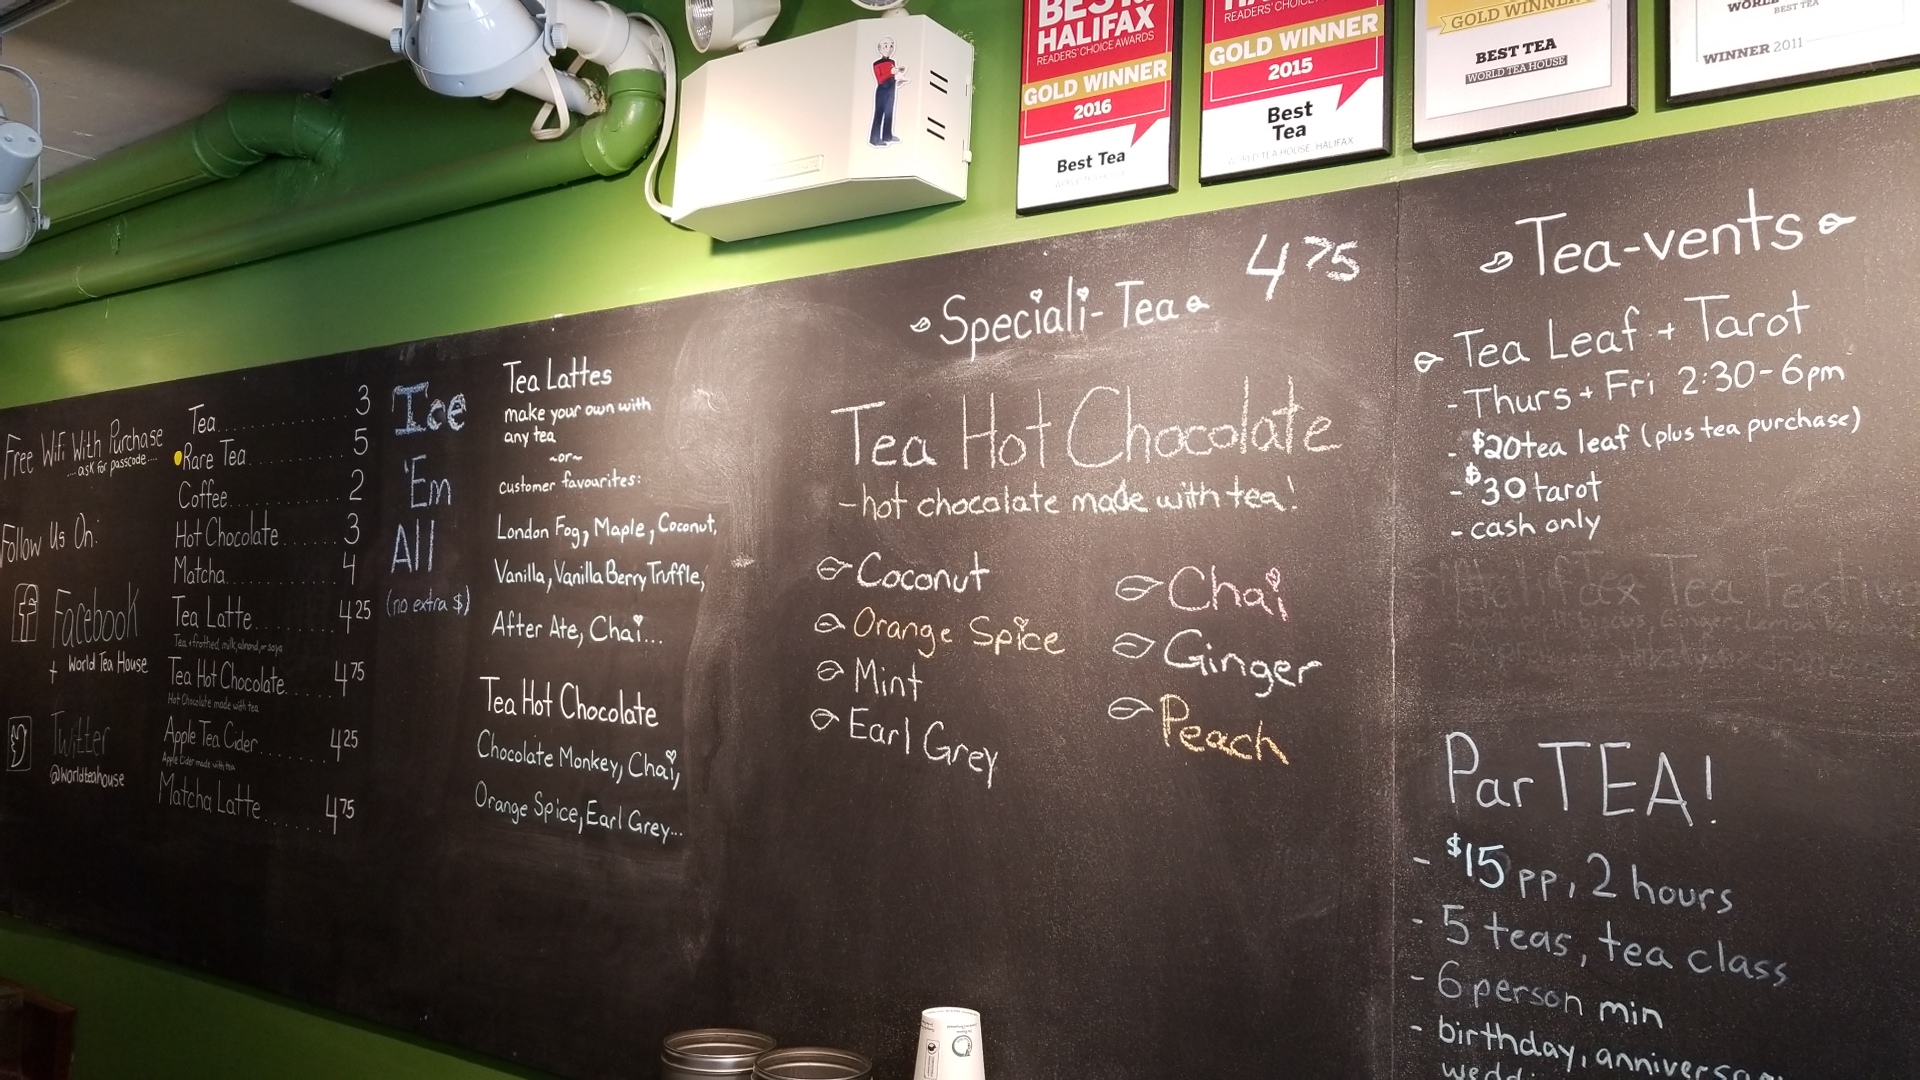 HALIFAX
READERS' CHOICE AWARDS
GOLD WINNER
2016
Best Tea
READERS' CHOICE
GOLD WINNER
2015
Best
Tea
WORLD TEA HOUSE, HALIFAX
GOLD WINNER
BEST TEA
WORLD TEA HOUSE
BEST TEA
WINNER 2011
Free Wifi With Purchase
...ask for passcode...
Follow Us On:
Facebook
+ World Tea House
Twitter
@worldteahouse
Tea 3
Rare Tea 5
Coffee 2
Hot Chocolate 3
Matcha 4
Tea Latte 4 25
Tea + frothed, milk, almond, or soya
Tea Hot Chocolate 4 75
Hot Chocolate made with tea
Apple Tea Cider 4 25
Apple Cider made with tea
Matcha Latte 4 75
Ice
'Em
All
(no extra $)
Tea Lattes
make your own with
any tea
~or~
customer favourites:
London Fog, Maple, Coconut,
Vanilla, Vanilla Berry Truffle,
After Ate, Chai...
Tea Hot Chocolate
Chocolate Monkey, Chai,
Orange Spice, Earl Grey...
Speciali-Tea 4 75
Tea Hot Chocolate
-hot chocolate made with tea!
Coconut
Orange Spice
Mint
Earl Grey
Chai
Ginger
Peach
Tea-vents
Tea Leaf + Tarot
- Thurs + Fri 2:30-6pm
- $20 tea leaf (plus tea purchase)
- $30 tarot
- cash only
Halifax Tea
ParTEA!
- $15 pp, 2 hours
- 5 teas, tea class
- 6 person min
- birthday,